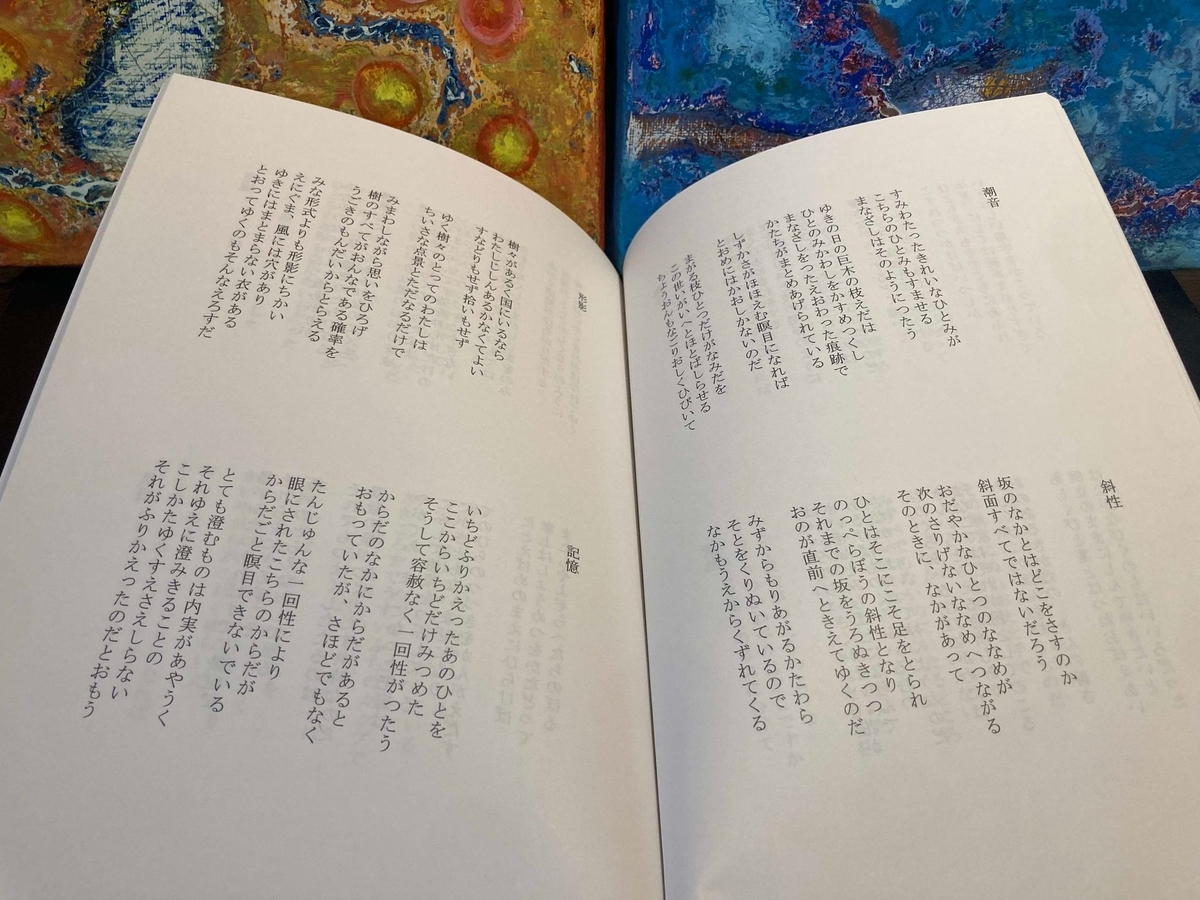 潮音
すみわたったきれいなひとみが
こちらのひとみもすませる
まなざしはそのようにつたう
ゆきの日の巨木の枝えだは
ひとのみかわしをかすめつくし
まなざしをつたえおわった痕跡で
かたちがまとめあげられている
しずかさがほほえむ瞑目になれば
とおめにはかおしかないのだ
まがる枝ひとつだけがなみだを
この世いがいへとほとばしらせる
ちょうおんもなごりおしくひびいて
斜性
坂のなかとはどこをさすのか
斜面すべてではないだろう
おだやかなひとつのななめが
次のさりげないななめへつながる
そのときに、なかがあって
ひとはそこにこそ足をとられ
のっぺらぼうの斜性となり
それまでの坂をうろぬきつつ
おのが直前へときえてゆくのだ
みずからもりあがるかたわら
そとをくりぬいているので
なかもうえからくずれてくる
形影
樹々がある、で国にいるなら
わたしじしんあるかなくてよい
すなどりもせず拾いもせず
ゆく樹々のとってのわたしは
ちいさな点景とただなるだけで
みまわしながら思いをひろげ
樹のすべてがおんなである確率を
うごきのもんだいからとらえる
みな形式よりも形影にちかい
えにぐま、風には穴があり
ゆきにはまとまらない衣がある
とおってゆくのもそんなえろすだ
記憶
いちどふりかえったあのひとを
ここからいちどだけみつめた
そうして容赦なく一回性がつたう
からだのなかにからだがあると
おもっていたが、さほどでもなく
たんじゅんな一回性により
眼にされたこちらのからだが
からだごと瞑目できないでいる
とても澄むものは内実があやうく
それゆえに澄みきることの
こしかたゆくすえさえしらない
それがふりかえったのだとおもう